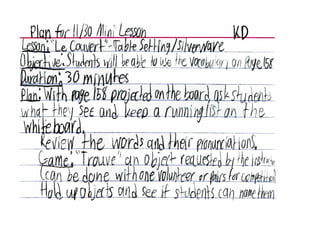 Plan for 11/30 Mini Lesson KD
Lesson: "Le Couvert" - Table Setting/Silverware
Objective: Students will be able to use the vocabulary on page 158
Duration: 30 minutes
Plan: With page 158 projected on the board, ask students
what they see and keep a running list on the
whiteboard.
Review the words and their pronunciations.
Game: "Trouve" an object requested by the
(can be done with one volunteer or pairs for competition)
Hold up objects and see if students can name them